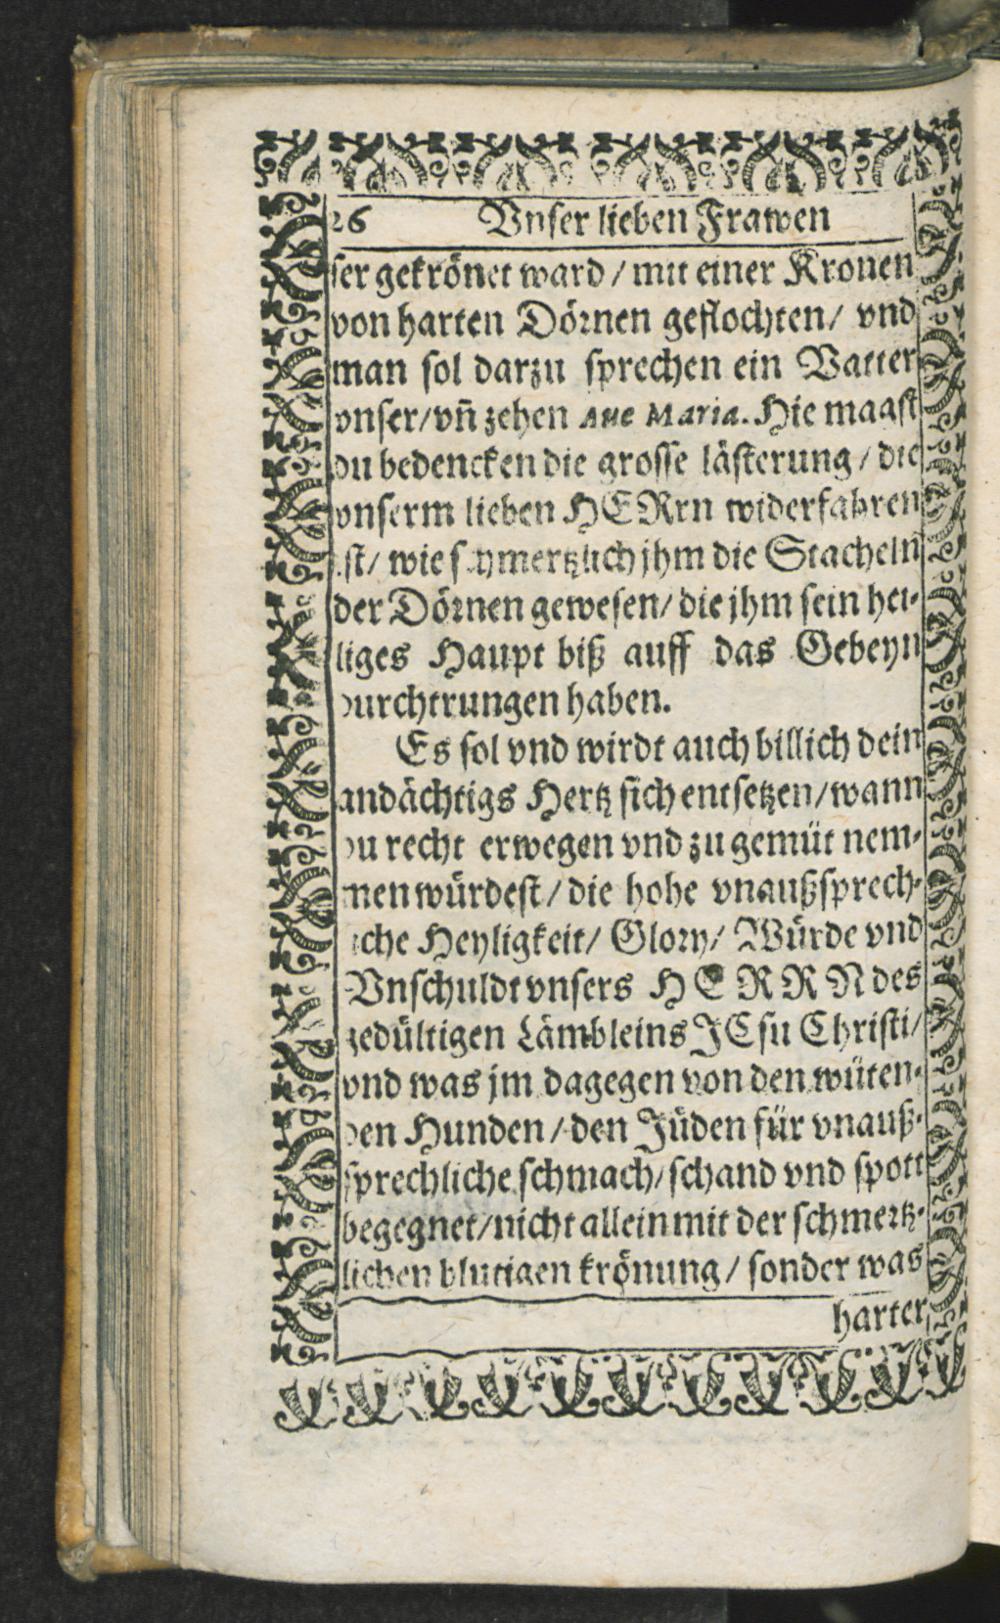 26 Vnser lieben Frawen
ser gekrönet ward / mit einer Kronen
von harten Dörnen geflochten / vnd
man sol darzu sprechen ein Vatter
vnser / vñ zehen Aue Maria. Hie maast
du bedencken die grosse lästerung / die
vnserm lieben HERrn widerfahren
ist / wie schmertzlich jhm die Stacheln
der Dörnen gewesen / die jhm sein hei-
liges Haupt biß auff das Gebeyn
durchtrungen haben.
Es sol vnd wirdt auch billich dein
andächtigs Hertz sich entsetzen / wann
du recht erwegen vnd zu gemüt nem-
men würdest / die hohe vnaußsprech-
iche Heyligkeit / Glory / Würde vnd
Vnschuldt vnsers HERRN des
gedültigen Lämbleins JEsu Christi /
vnd was jm dagegen von den wüten-
den Hunden / den Jüden für vnauß-
sprechliche schmach / schand vnd spott
begegnet / nicht allein mit der schmertz-
lichen blutigen krönung / sonder was
harter